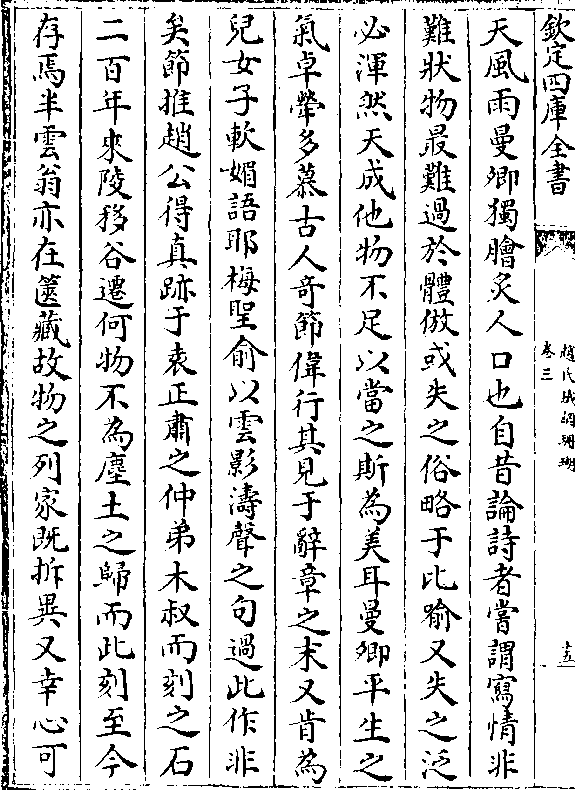 欽定四庫全書
趙氏鐵網珊瑚
卷三
十五
天風雨曼卿獨膾炙人口也自昔論詩者嘗謂寫情非
難狀物最難過於體倣或失之俗略于比喻又失之泛
必渾然天成他物不足以當之斯為美耳曼卿平生之
氣卓犖多慕古人奇節偉行其見于辭章之末又肯為
兒女子軟媚語耶梅聖俞以雲影濤聲之句過此作非
矣節推趙公得真跡于袁正肅之仲弟木叔而刻之石
二百年來陵移谷遷何物不為塵土之歸而此刻至今
存焉半雲翁亦在篋藏故物之列家既拆異又幸心可